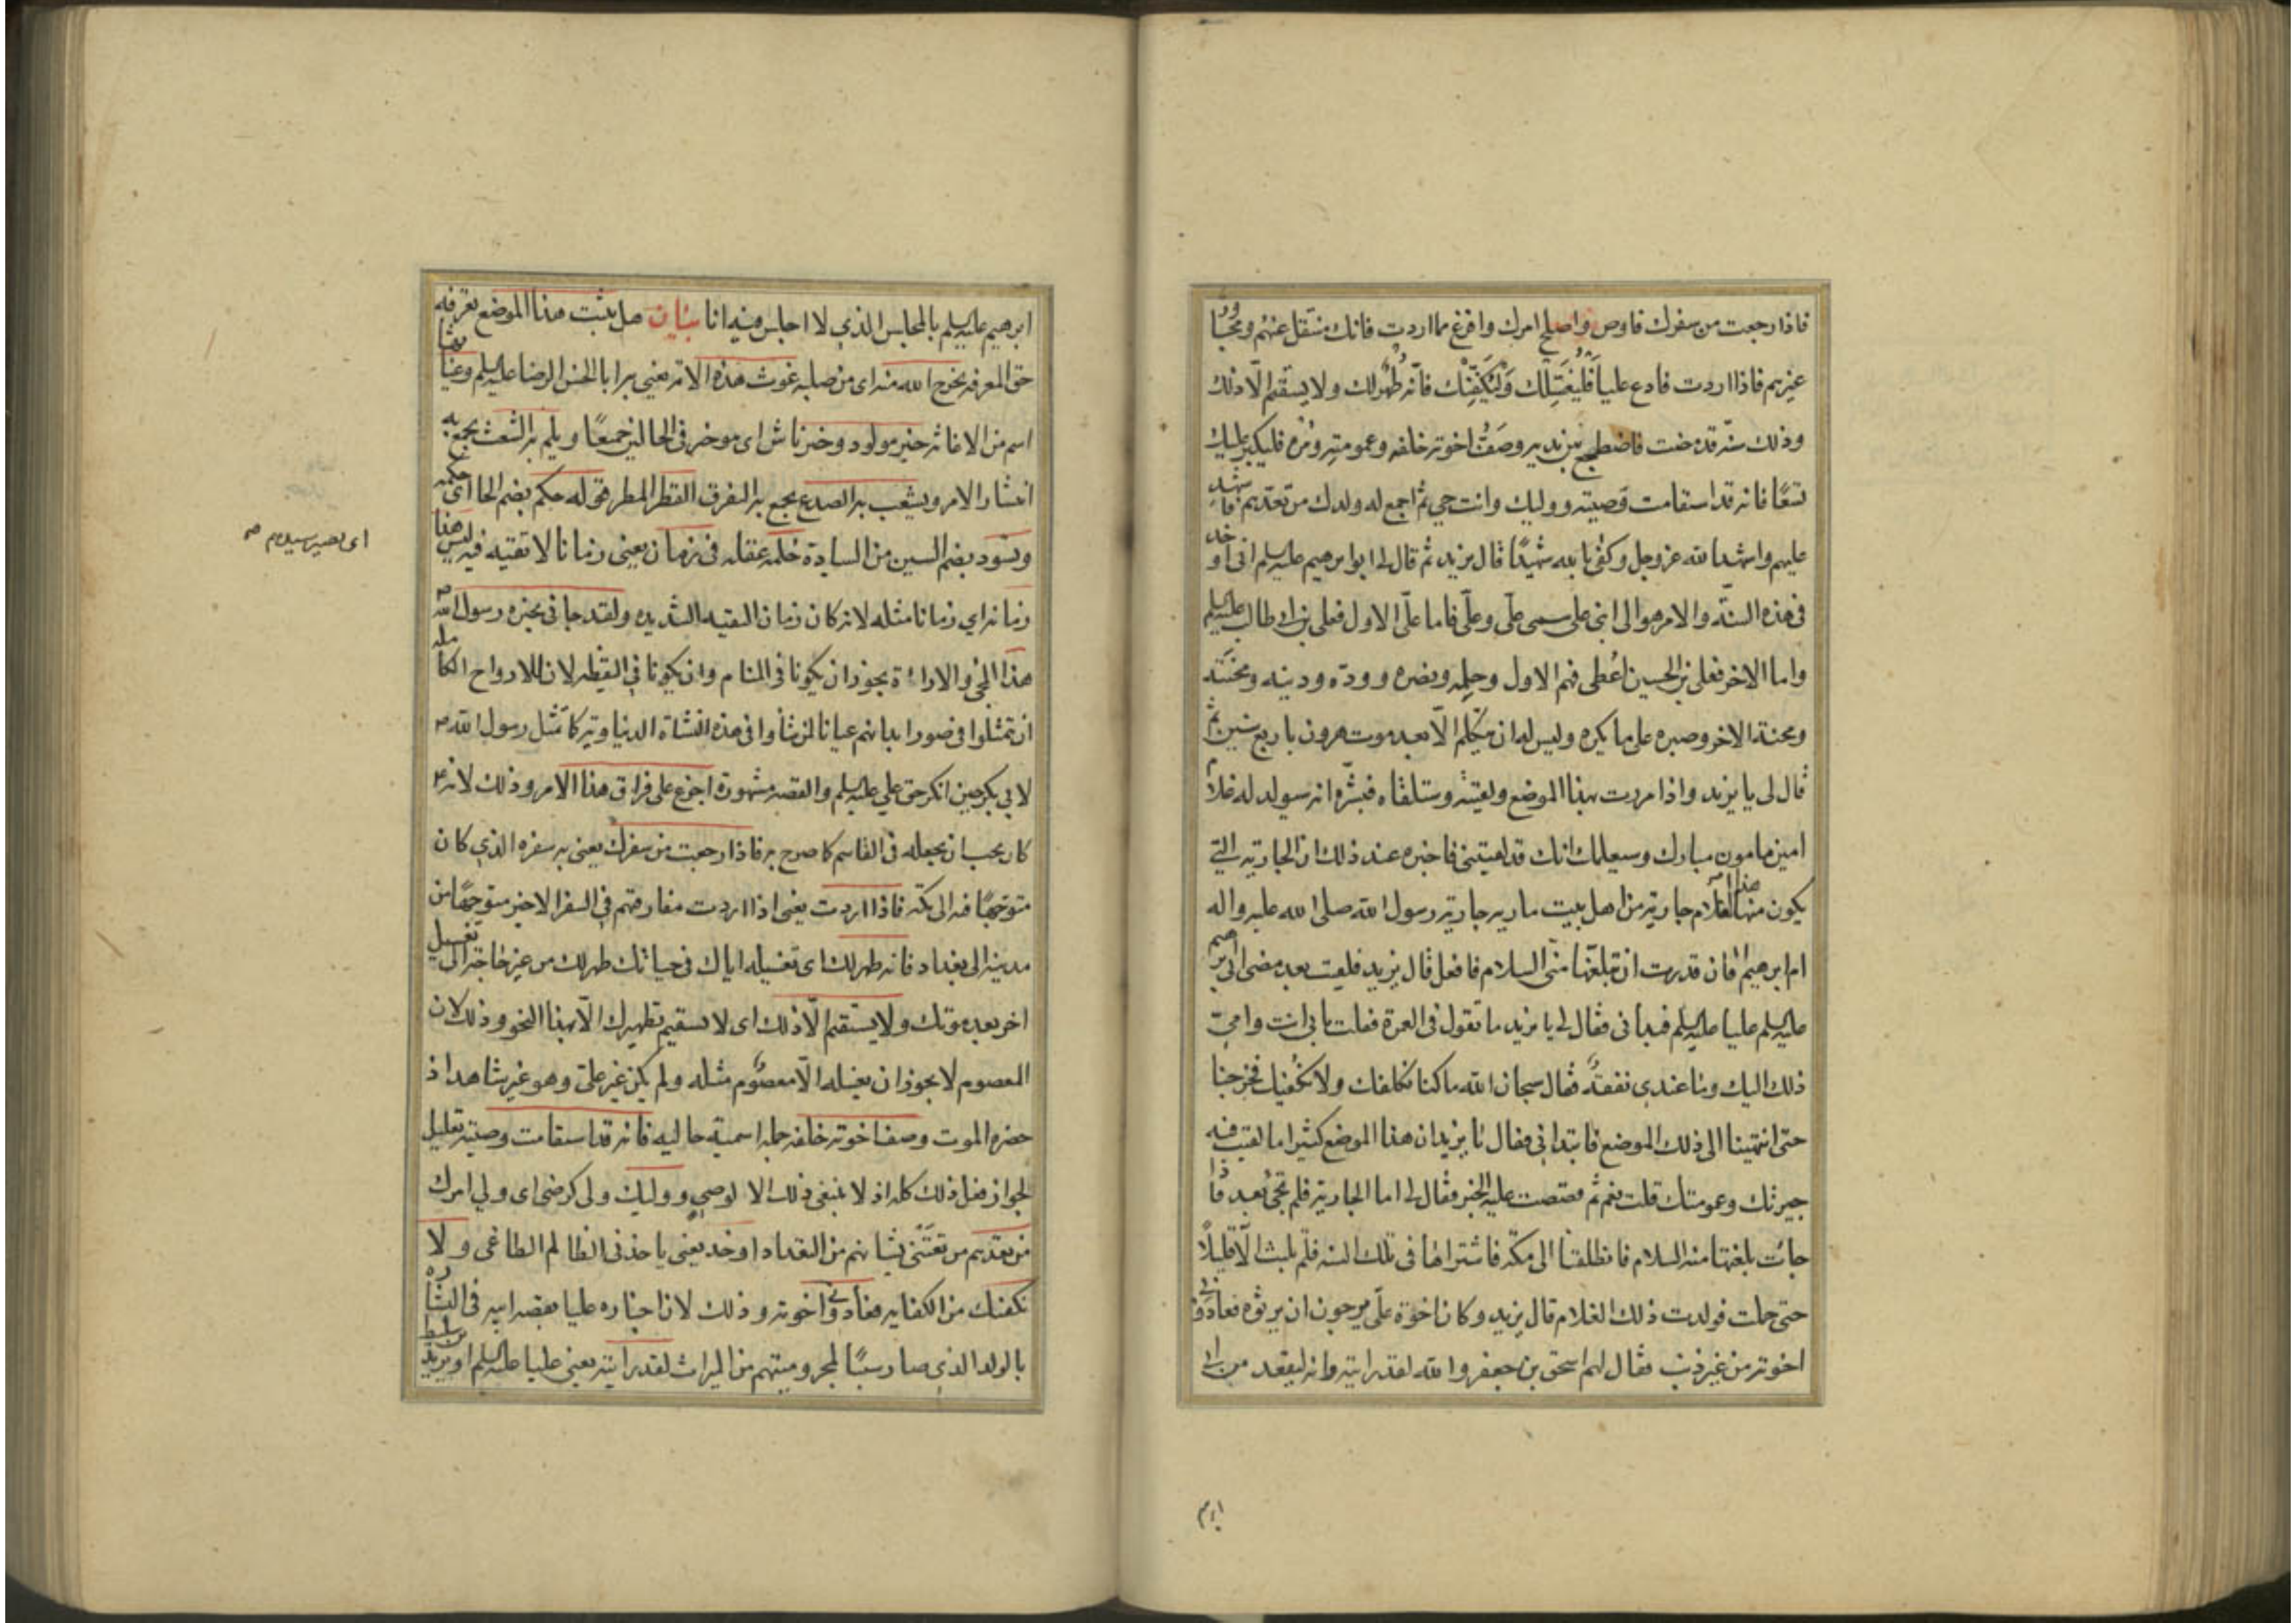 فاذا رجعت من سفرك فاوص واصلح امرك وافرغ مما اردت فانك منتقل عنهم ومجاور
غيرهم فاذا اردت فادع عليا فَلْيُغَسِّلْك وَلْيُكَفِّنْك فانّه طُهرٌ لك ولا يستقيم الّا ذلك
وذلك سنّة قد مضت فاضطجع بين يديه وصَفّ اخوته خلفه وعمومته ومُره فليكبر عليك
تسعًا فانه قد استقامت وصيته ووليك وانت حي ثم اجمع له ولدك من تعدّهم فاشهد
عليهم واشهد الله عز وجل وكفى بالله شهيدًا قال يزيد ثم قال لي ابو ابرهيم عليه السلم اني اوخذ
في هذه السنّة والامر هو الى ابني علي سمي علي وعلي فاما علّي الاول فعلي بن ابي طالب عليه السلم
واما الاخر فعلي بن الحسين اُعطى فهم الاول وحلمه ونصره وودّه ودينه ومحنته
ومحنة الاخر وصبره على ما يكره وليس له ان يتكلم الّا بعد موت هرون باربع سنين ثم
قال لي يا يزيد واذا مررت بهذا الموضع ولقيته وستلقاه فبشّره انه سيولد له غلام
امين مامون مبارك وسيعلمك انك قد لقيتني فاخبره عند ذلك ان الجارية التي
يكون منها هذا الغلام جارية من اهل بيت مارية جارية رسول الله صلى الله عليه واله
ام ابرهيم فان قدرت ان تبلغها منّي السلام فافعل قال يزيد فلقيت بعد مضى ابي ابرهيم
عليه السلم عليا عليه السلم فبدأني فقال لي يا يزيد ما تقول في العمرة فقلت بابي انت وامّي
ذلك اليك وما عندي نفقة فقال سبحان الله ما كنا نكلفك ولا نكفيك فخرجنا
حتى انتهينا الى ذلك الموضع فابتدأني فقال يا يزيد ان هذا الموضع كثيرا ما لقيت فيه
جيرتك وعمومتك قلت نعم ثم قصصت عليه الخبر فقال لي اما الجارية فلم تجئ بعد فاذا
جائت بلغتها منه السلام فانطلقنا الى مكّة فاشتراها في تلك السنة فلم تلبث الّا قليلًا
حتى حملت فولدت ذلك الغلام قال يزيد وكان اخوة علّي يرجون ان يرثوه فعادوني
اخوته من غير ذنب فقال لهم اسحق بن جعفر والله لقد رايته وانه ليقعد من ابي
ابرم
ابرهيم عليه السلم بالمجلس الذي لا اجلس فيه انا بيان هل تثبت هذا الموضع تعرفه
حق المعرفة يخرج الله منه اي من صلبه غوث هذه الامة يعني به ابا الحسن الرضا عليه السلم وغياثها
اسم من الاغاثة خير مولود وخير ناش اي هو خير في الحالين جميعًا ويلم به الشعث يجمع به
انتشار الامر ويشعب به الصدع يجمع به التفرق القطر المطر قوله حكم بضم الحا اي حكمه
ويسود بضم السين من السيادة حلمه عقله في زمان يعني زمانا لا تقية فيه ليس هذا
زمانه اي زمانا مثله لانه كان زمان التقية الشديده ولقد جاني بخبره رسول الله ص
هذا المجئ والاراءة يجوز ان يكونا في المنام وان يكونا في اليقظه لان للارواح الكاملة
ان تتمثلوا في صور ابدانهم عيانا لمن شاؤا في هذه النشاة الدنياوية كما تمثل رسول الله ص
لابي بكر حين انكر حق علي عليه السلم والقصة مشهورة اجزع على فراق هذا الامر وذلك لانه ع
كان يحب ان يجعله في القاسم كما صرح به فاذا رجعت من سفرك يعني به سفره الذي كان
متوجهًا فيه الى مكّة فاذا اردت يعني اذا اردت مفارقتهم في السفر الاخير متوجهًا من
مدينة الى بغداد فانه طهر لك اي تغسيله اياك في حياتك طهر لك من غير حاجة الى تغسيل
اخر بعد موتك ولا يستقيم الّا ذلك اي لا يستقيم تطهيرك الّا بهذا النحو وذلك لان
المعصوم لا يجوز ان يغسله الّا معصوم مثله ولم يكن غير علّي وهو غير شاهد اذ
حضره الموت وصف اخوته خلفه جملة اسمية حالية فانه قد استقامت وصيته تعليل
لجواز فعل ذلك كله اذ لا ينبغي ذلك الا لوصي ووليك ولي كرضي اي ولي امرك
من تعدهم من تعتني بشانهم من التعداد اوخذ يعني ياخذني الظالم الطاغي ولا
نكفيك من الكفاية فعادوني اخوته وذلك لان اخباره عليا بقصة ابيه في البشارة
بالولد الذي صار سببًا لمحروميتهم من الميراث لقد رايته يعني عليا عليه السلم او يزيد بن سليط
اي يصير سيدهم ص